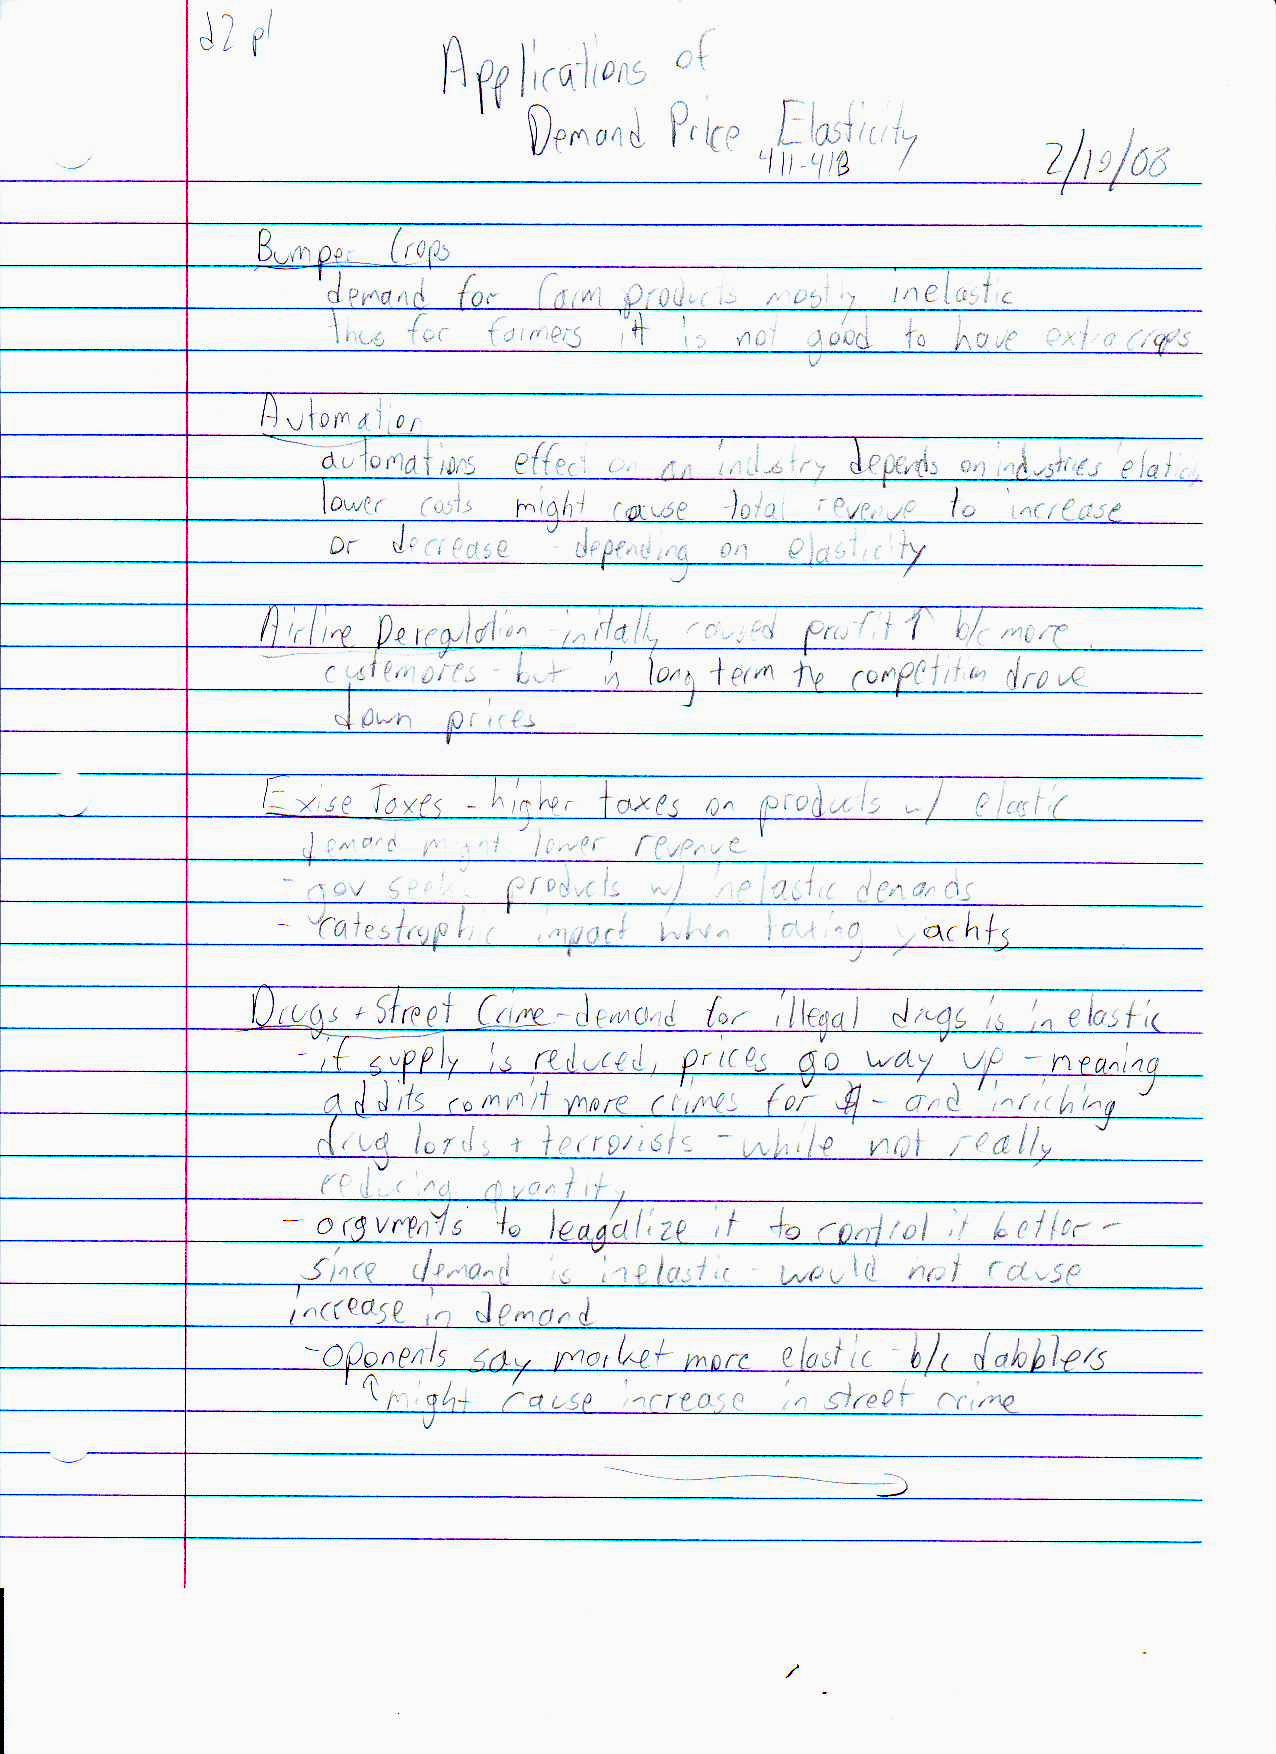 d2 p1
Applications of
Demand Price Elasticity
411-41B
2/19/08
Bumper Crops
demand for farm products mostly inelastic
thus for farmers it is not good to have extra crops
Automation
automations effect on an industry depends on industries elatic
lower costs might cause total revenue to increase
or decrease - depending on elasticity
Airline Deregulation - initally caused profit ↑ b/c more
custemores - but in long term the competition drove
down prices
Exise Taxes - higher taxes on products w/ elastic
demand might lower revenue
- gov seeks products w/ inelastic demands
- catestrophic impact when taxing yachts
Drugs + Street Crime - demand for illegal drugs is inelastic
- if supply is reduced, prices go way up - meaning
addits commit more crimes for $ - and inriching
drug lords + terrorists - while not really
reducing quantity
- arguments to leagalize it to control it better -
since demand is inelastic - would not cause
increase in demand
- oponents say market more elastic - b/c dabblers
↑ might cause increase in street crime